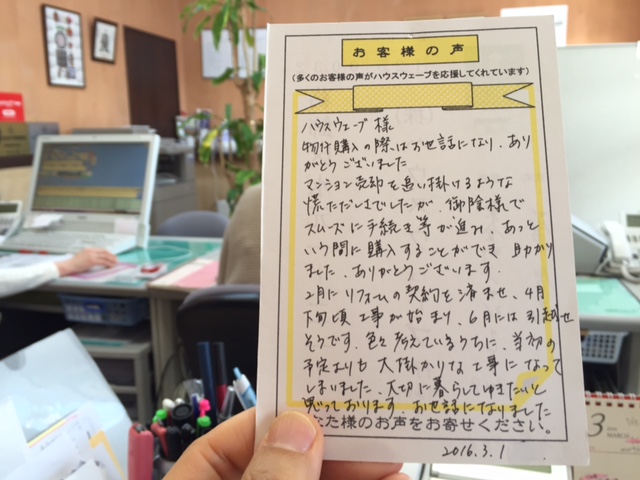 お客様の声
(多くのお客様の声がハウスウェーブを応援してくれています)
ハウスウェーブ様
物件購入の際はお世話になり、あり
がとうございました
マンション売却を追い掛けるような
慌ただしさでしたが、御陰様で
スムーズに手続き等が進み、あっと
いう間に購入することができ 助かり
ました、ありがとうございます。
2月にリフォームの契約を済ませ、4月
下旬頃工事が始まり、6月には引越せ
そうです。色々考えているうちに、当初の
予定よりも大掛かりな工事になって
しまいました、大切に暮らしてゆきたいと
思っております お世話になりました
なた様のお声をお寄せください。
2016.3.1
3
MARCH